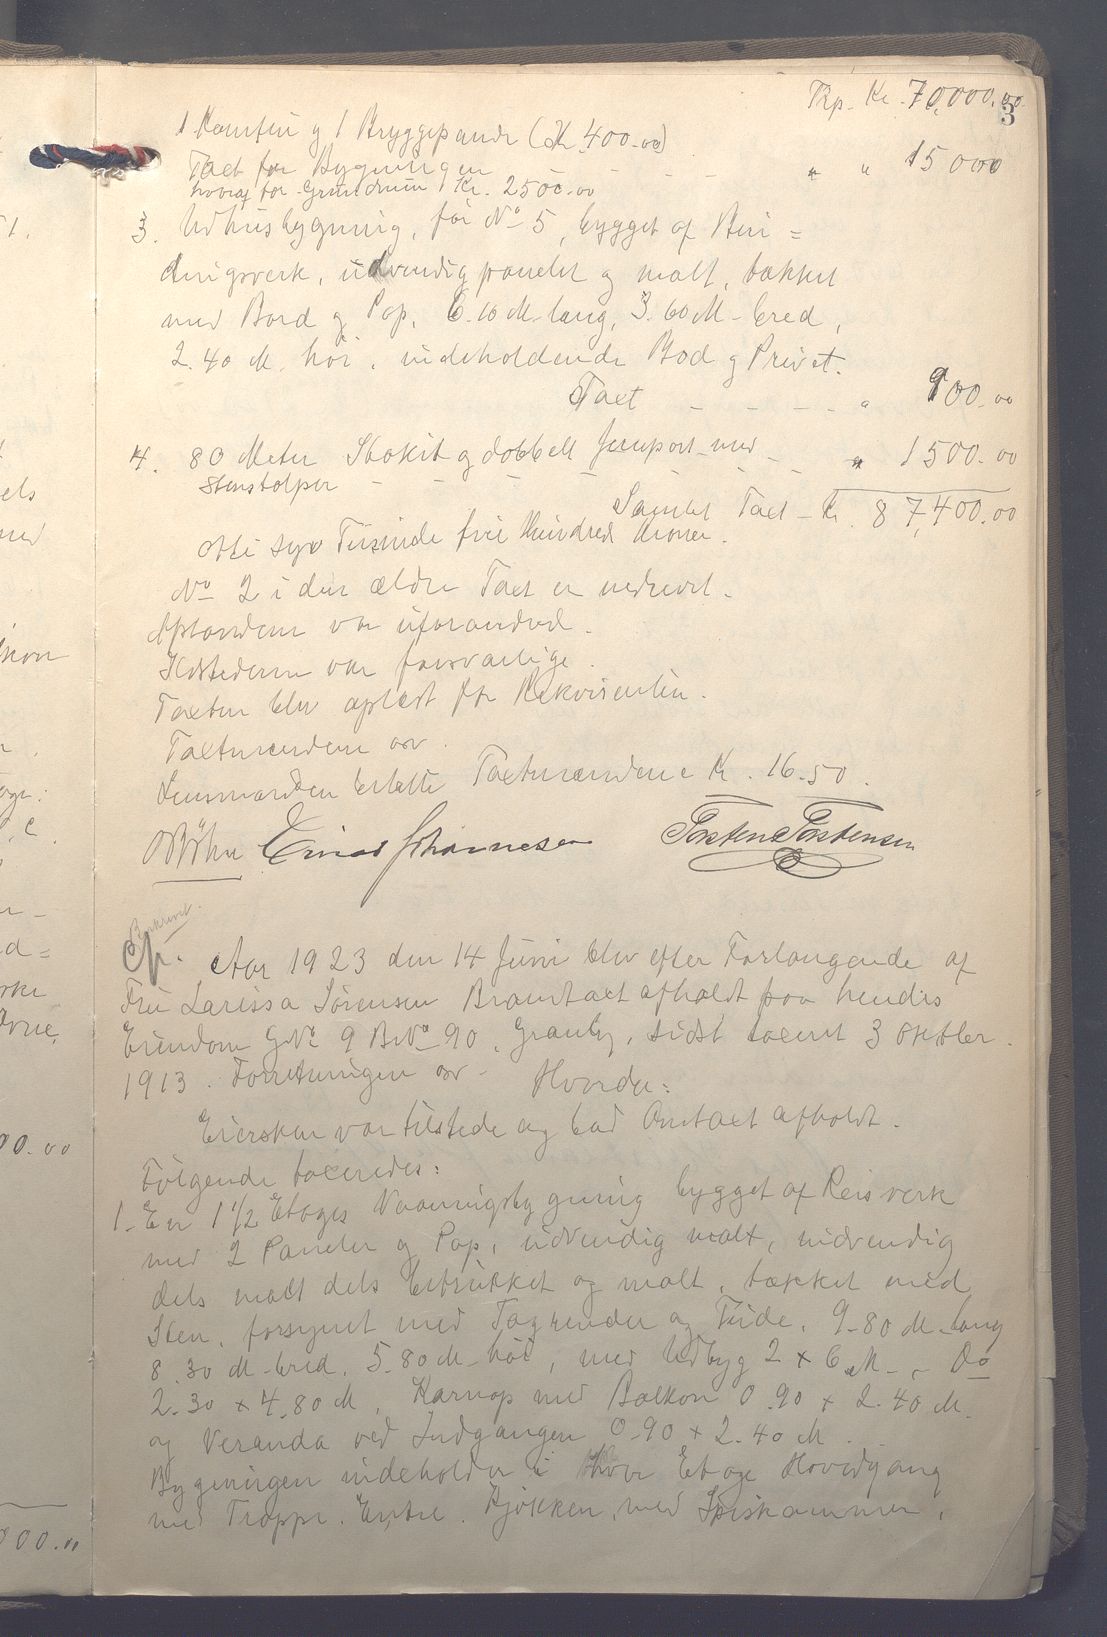 Trp. Kr. 70,000.00
3
1 Komfur og 1 Bryggepande (Kr. 400.00)
Taxt for Bygningen - - - " " 15000
hvoraf for Grundmur Kr. 2500.00
3. Udhusbygning, for No 5, bygget af Bin=
dingsverk, udvendig panelet og malt, tækket
med Bord og Pap, 6.10 M lang, 3.60 M bred,
2.40 M høi, indeholdende Bod og Privet.
Taxt - - - - " 900.00
4. 80 Meter Stakit og dobbelt Jernport med - - " 1500.00
Stenstolper - - - -
Samlet Taxt - Kr. 87,400.00
Otti syv Tusinde fire Hundred Kroner.
No 2 i den ældre Taxt er nedrevet.
Afstandene var uforandret.
Ildstederne var forsvarlige.
Taxten blev oplæst for Rekvirenten.
Taxtmændene osv.
Lensmanden betalte Taxtmændene Kr. 16.50.
Einar Johannesen Torsten Torstensen
Beskrevet.
Aar 1923 den 14 Juni blev efter Forlangende af
Fru Larissa Sørensen Brandtaxt afholdt paa hendes
Eiendom GNo 9 BNo 90, Granly, sidst taxeret 3 Oktober
1913. Forretningen osv. Hvorda:
Eiersken var tilstede og bad Omtaxt afholdt.
Følgende taxeredes:
1. En 1 1/2 Etages Vaaningsbygning bygget af Reisverk
med 2 Paneler og Pap, udvendig malt, indvendig
dels malt dels betrukket og malt, tækket med
Sten, forsynet med Tagrender og Tude, 9.80 M lang
8.30 M bred, 5.80 M høi, med Udbyg 2 x 6 M, Do
2.30 x 4.80 M, Karnap med Balkon 0.90 x 2.40 M.
og Veranda ved Indgangen 0.90 x 2.40 M.
Bygningen indeholder i hver Etage Hovedgang
med Trappe, Entre, Kjøkken, med Spiskammer,